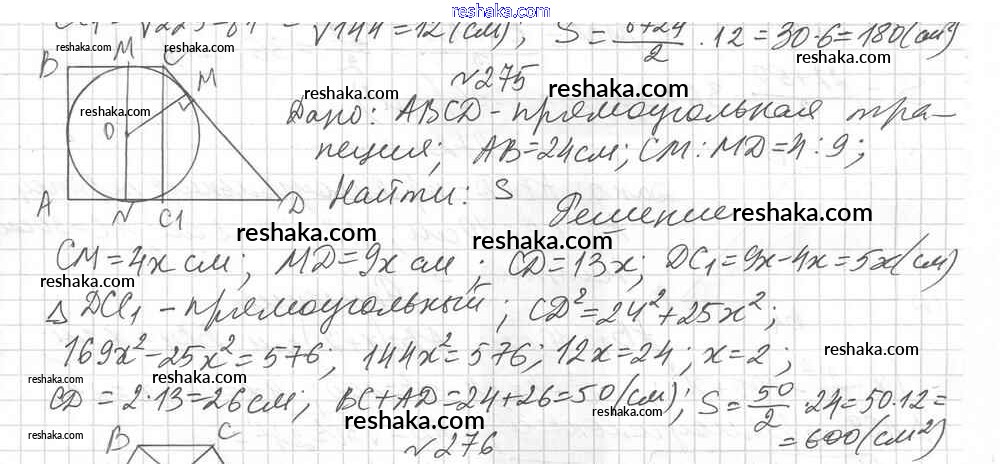 reshaka.com
√225-81 = √144 = 12 (см); S = 6+24/2 · 12 = 30·6 = 180 (см²)
reshaka.com
reshaka.com
№275
B M C
M
reshaka.com
reshaka.com
O
Дано: ABCD - прямоугольная тра-
пеция; AB = 24 см; CM : MD = 4 : 9;
Найти: S
A N C1 D
Решение
reshaka.com
reshaka.com
reshaka.com
CM = 4x см; MD = 9x см; CD = 13x; DC₁ = 9x - 4x = 5x (см)
reshaka.com
△ DCC₁ - прямоугольный; CD² = 24² + 25x²;
169x² - 25x² = 576; 144x² = 576; 12x = 24; x = 2;
reshaka.com
reshaka.com
reshaka.com
CD = 2·13 = 26 см; BC + AD = 24 + 26 = 50 (см); S = 50/2 · 24 = 50·12 =
= 600 (см²)
reshaka.com
reshaka.com
reshaka.com
reshaka.com
№276
B C